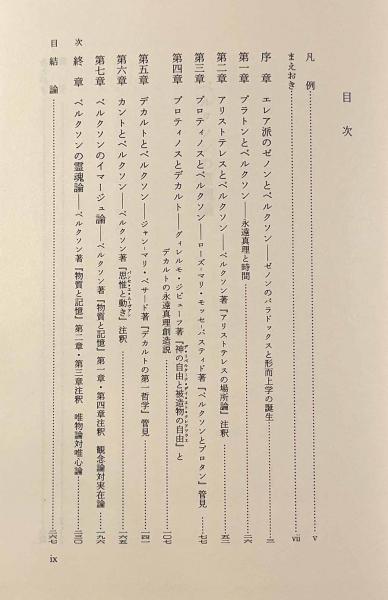 目次
凡例……v
まえおき……vii
序章 エレア派のゼノンとベルクソン——ゼノンのパラドックスと形而上学の誕生……三
第一章 プラトンとベルクソン——永遠真理と時間……二六
第二章 アリストテレスとベルクソン——ベルクソン著『アリストテレスの場所論』注釈……五二
第三章 プロティノスとベルクソン——ローズ=マリ・モッセ-バスティド著『ベルクソンとプロタン』管見……七七
第四章 プロティノスとデカルト——ギレルモ・ジビューフ著『神の自由と被造物の自由』と
デカルトの永遠真理創造説……一〇七
第五章 デカルトとベルクソン——ジャン=マリ・ベサード著『デカルトの第一哲学』管見……一四一
第六章 カントとベルクソン——ベルクソン著『思惟と動き』注釈……一六五
第七章 ベルクソンのイマージュ論——ベルクソン著『物質と記憶』第一章・第四章注釈 観念論対実在論……一九六
終章 ベルクソンの霊魂論——ベルクソン著『物質と記憶』第二章・第三章注釈 唯物論対唯心論……二三〇
結論……二六七
目次
ix